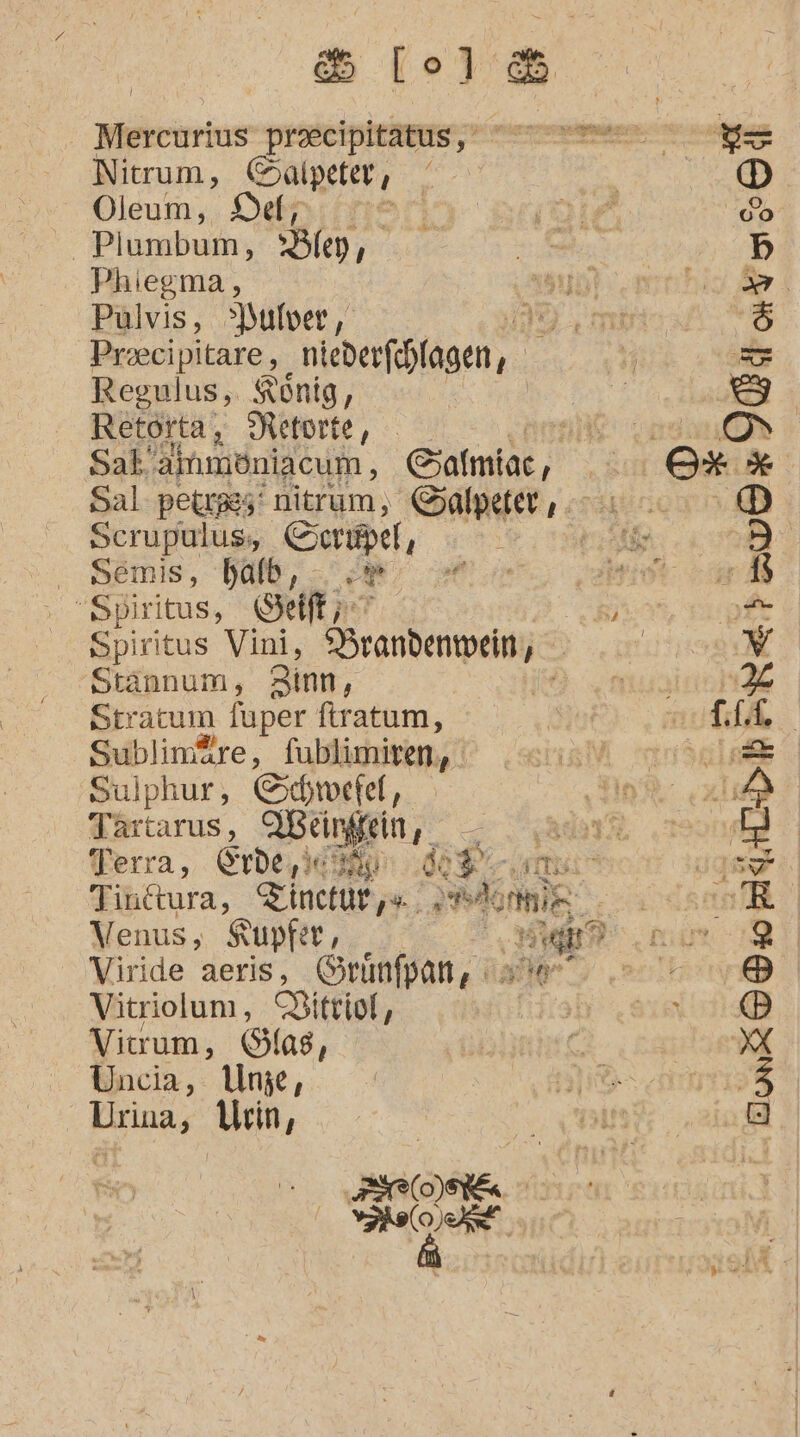 [o]
Mercurius præcipitatus,
Nitrum, Salpeter,
Oleum, Oel,
Plumbum, Bley, ♄
Phlegma,
Pulvis, Pulver,
Præcipitare, niederſchlagen,
Regulus, König,
Retorta, Retorte,
Sal ammoniacum, Salmiac,
Sal petræ; nitrum, Salpeter,
Scrupulus, Scrupel, ℈
Semis, halb, ß
Spiritus, Geiſt,
Spiritus Vini, Brandenwein,
Stannum, Zinn, ♃
Stratum ſuper ſtratum, ſ.ſ.ſ.
Sublimare, ſublimiren,
Sulphur, Schwefel, 🜍
Tartarus, Weinſtein,
Terra, Erde,
Tinctura, Tinctur, R
Venus, Kupfer, ♀
Viride aeris, Grünſpan, ⊕
Vitriolum, Vitriol,
Vitrum, Glas, XX
Uncia, Unze, ℥
Urina, Urin, ⊡
(o)
(o)